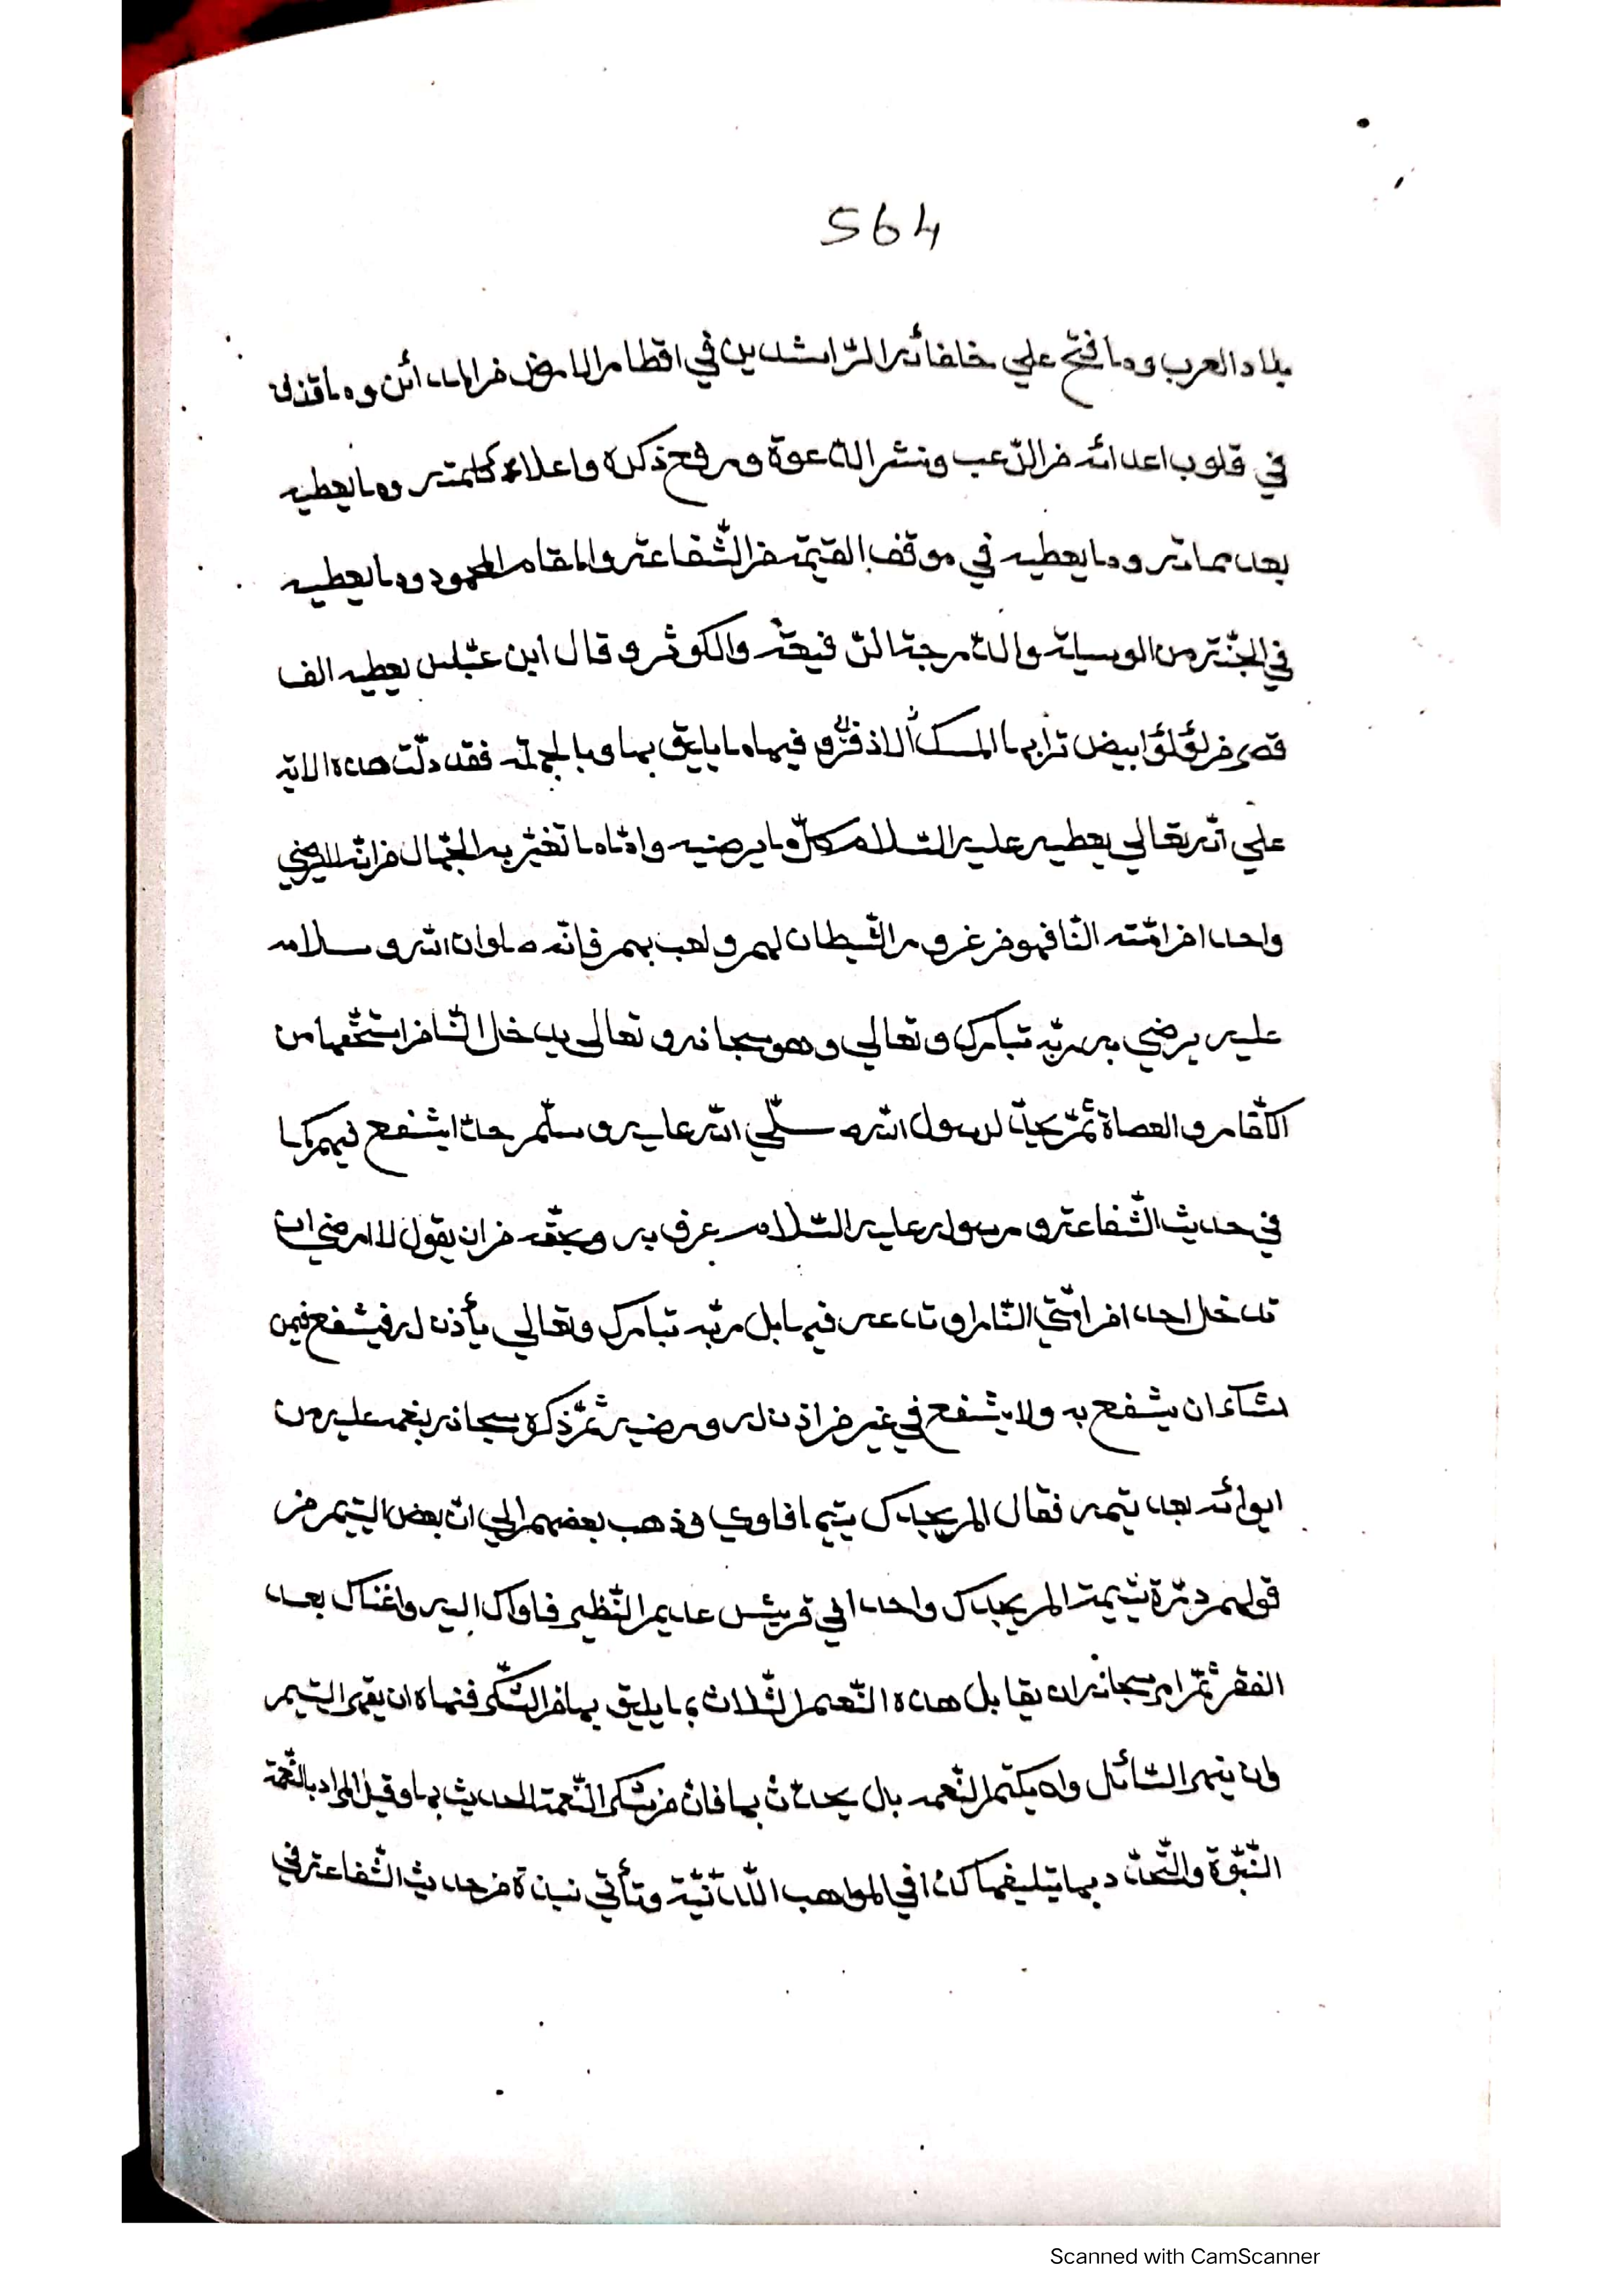 564
بلاد العرب وما فتح علي خلفائه الرّاشدين في اقطار الارض من المدائن وما قذف
في قلوب اعدائه من الرّعب ونشر الدّعوة ورفع ذكره واعلاء كلمته وما يعطيه
بعد مماته وما يعطيه في موقف القيٰمة من الشّفاعة والمقام المحمود وما يعطيه
في الجنّة من الوسيلة والدّرجة الرّفيعة والكوثر وقال ابن عبّاس يعطيه الف
قصر من لؤلؤ ابيض ترابها المسك الاذفر وفيها ما يليق بها وبالجملة فقد دلّت هذه الاية
علي انّه تعالي يعطيه عليه السّلام كلّ ما يرضيه وامّا ما تغترّ به الجهّال من انّه لا يرضي
واحدا من امّته النّار فهو من غرور الشّيطان لهم ولعب بهم فانّه صلوات الله وسلامه
عليه يرضي به ربّه تبارك وتعالي وهو سبحانه وتعالي يدخل النّار من استحقّها من
الكفّار والعصاة ثمّ يحدّ لرسول الله صلّي الله عليه وسلّم حدّا يشفع فيهم كما
في حديث الشّفاعة ورسوله عليه السّلام عرف به وبحقّه من ان يقول لا ارضي ان
تدخل احدا من امّتي النّار او تدعه فيها بل ربّه تبارك وتعالي يأذن له فيشفع فيمن
شاء ان يشفع به ولا يشفع في غير من اذن له ورضيه ثمّ ذكره سبحانه بنعمه عليه من
ايوائه بعد يتمه فقال الم يجدك يتيما فاوي وذهب بعضهم الي انّ بعض اليتيم من
قولهم درّة يتيمة الم يجدك واحدا في قريش عديم النّظير فاواك اليه واغناك بعد
الفقر ثمّ امره سبحانه ان يقابل هذه النّعم الثّلاث بما يليق بها من الشّكر فنهاه ان يقهر اليتيم
وان ينهر السّائل وان يكتم النّعمة بل يحدّث بها فانّ من شكر النّعمة الحديث بها وقيل المراد بالنّعمة
النّبوّة والتّحدّث بها تبليغها كذا في المواهب اللّدنّيّة وتأتي نبذة من حديث الشّفاعة في
Scanned with CamScanner